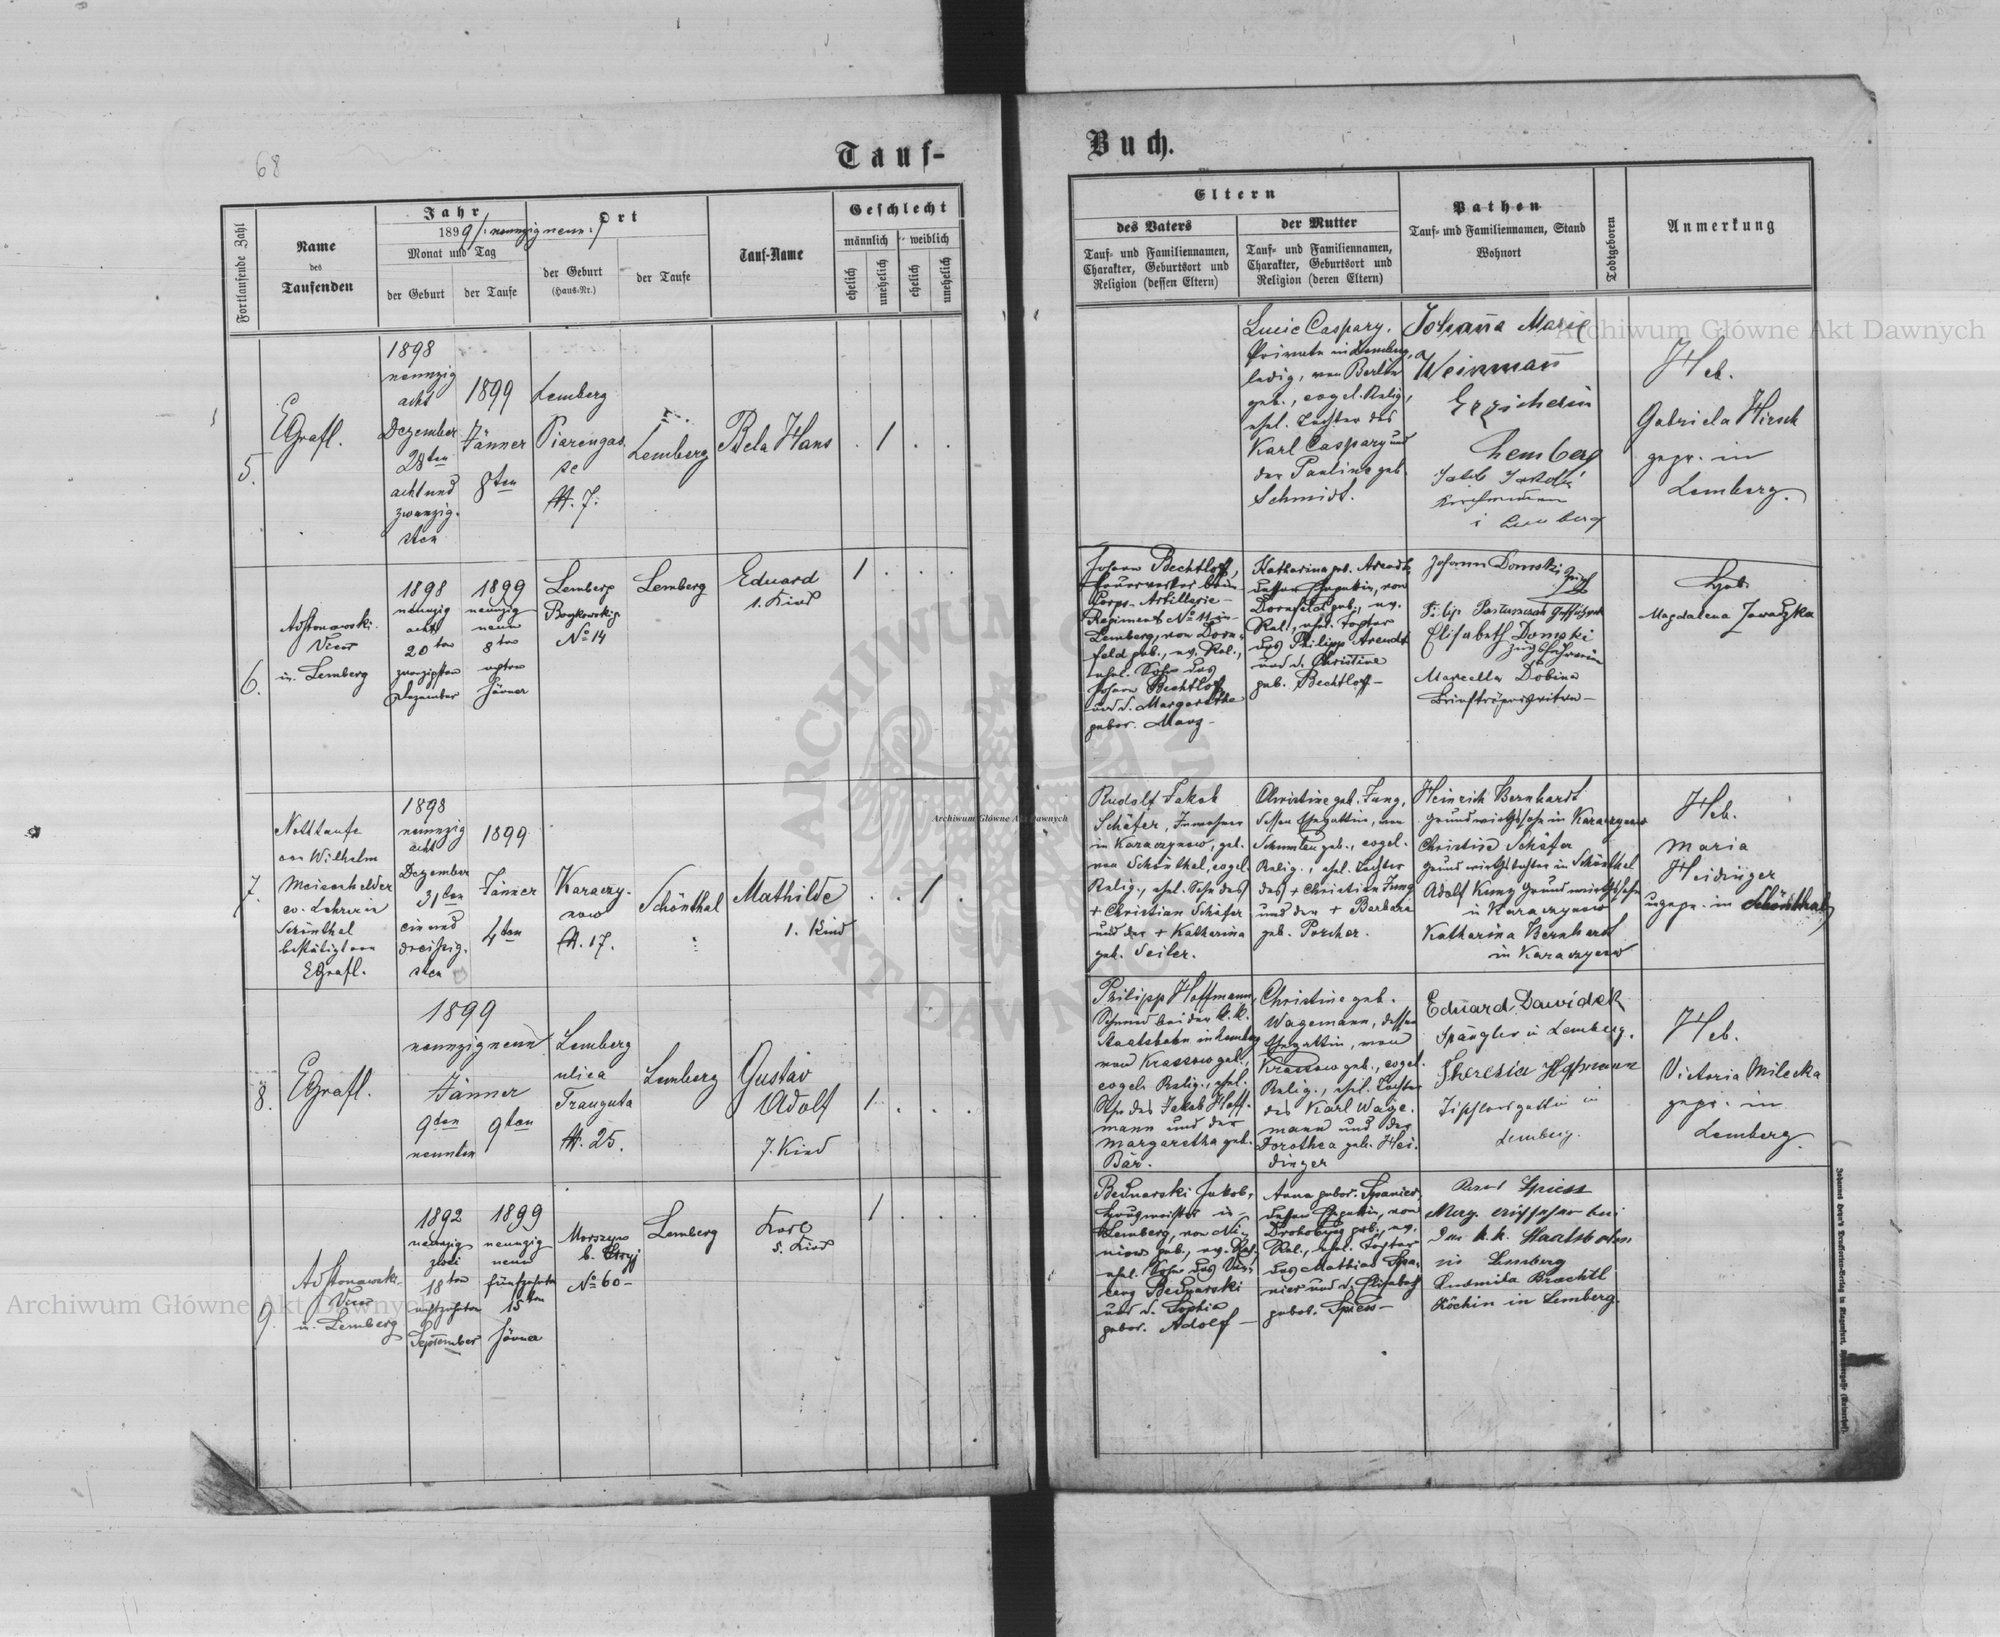 68
Tauf-
Buch.
Fortlaufende Zahl
Name
des
Taufenden
Jahr
1899 /: neunzigneun :/
Monat und Tag
der Geburt
der Taufe
Ort
der Geburt
(Haus-Nr.)
der Taufe
Tauf-Name
Geschlecht
männlich
weiblich
ehelich
unehelich
ehelich
unehelich
Eltern
des Vaters
Tauf- und Familiennamen,
Charakter, Geburtsort und
Religion (dessen Eltern)
der Mutter
Tauf- und Familiennamen,
Charakter, Geburtsort und
Religion (deren Eltern)
Pathen
Tauf- und Familiennamen, Stand
Wohnort
Todtgeboren
Anmerkung
5.
EGrafl.
1898
neunzig
acht
Dezember
28ten
acht und
zwanzig-
sten
1899
Jänner
8ten
Lemberg
№. 7.
Lemberg
Bela Hans
. 1 . .
Lucie Caspary,
Private in Lemberg,
ledig, von Berlin
geb., evgel. Relig.,
ehel. Tochter des
Karl Caspary und
der Pauline geb.
Schmidt.
Johanna Marie
Weinmann
Erzieherin
Lemberg
Kaufmann
i Lemberg
Heb.
Gabriela Hirsch
gepr. in
Lemberg.
6.
Vicar
in Lemberg
1898
neunzig
acht
20ten
zwanzigsten
Dezember
1899
neunzig
neun
8ten
achten
Jänner
Lemberg
№ 14
Lemberg
Eduard
1. Kind
1 . . .
Johann Bechtloff,
Feuerwerker beim
Corps-Artillerie-
Regiment № 11 in
Lemberg, von Dorn-
feld geb., ev. Rel.,
ehel. Sohn des
Johann Bechtloff
und d. Margarethe
gebor. Mang -
Katharina geb. Arendt
dessen Ehegattin, von
Dornfeld geb., ev.
Rel., ehel. Tochter
des Philipp Arendt
und d. Christine
geb. Bechtloff -
Johann Domski
Filip
Elisabeth Domski
Zugsführerin
Marcella Dobina
Briefträgersgattin -
Heb.
Magdalena
7.
Nottaufe
von Wilhelm
Meisenhelder
ev. Lehrer in
Schönthal
bestätigt von
EGrafl.
1898
neunzig
acht
Dezember
31ten
ein und
dreißig-
sten
1899
Jänner
4ten
Karaczy-
now
№. 17.
Schönthal
Mathilde
1. Kind
. . 1 .
Rudolf Jakob
Schäfer, Inwohner
in Karaczynow, geb.
von Schönthal, evgel.
Relig., ehel. Sohn des
+ Christian Schäfer
und der + Katharina
geb. Seiler.
Christine geb. Jung,
dessen Ehegattin, von
Schumlau geb., evgel.
Relig., ehel. Tochter
des + Christian Jung
und der + Barbara
geb. Porcher.
Heinrich Bernhardt
Grundwirthssohn in Karaczynow
Christine Schäfer
Grundwirthstochter in Schönthal
Adolf Kunz Grundwirthssohn
in Karaczynow
Katharina Bernhardt
in Karaczynow
Heb.
Maria
Heidinger
ungepr. in Schönthal
8.
EGrafl.
1899
neunzigneun
Jänner
9ten 9ten
neunten
Lemberg
ulica
Trauguta
№. 25.
Lemberg
Gustav
Adolf
7. Kind
1 . . .
Philipp Hoffmann,
Schmied bei der k.k.
Staatsbahn in Lemberg
von Krassow geb.,
evgel. Relig., ehel.
Sohn des Jakob Hoff-
mann und der
Margaretha geb.
Bär.
Christine geb.
Wagemann, dessen
Ehegattin, von
Krassow geb., evgel.
Relig., ehel. Tochter
des Karl Wage-
mann und der
Dorothea geb. Hei-
dinger
Eduard Dawidek
Spängler in Lemberg.
Theresia Hoffmann
Tischlersgattin in
Lemberg.
Heb.
Victoria Milecka
gepr. in
Lemberg.
9.
Vicar
in Lemberg
1892
neunzig
zwei
18ten
achtzehnten
September
1899
neunzig
neun
fünfzehnten
15ten
Jänner
Morszyn
b. Stryj
№ 60 -
Lemberg
Karl
5. Kind
1 . . .
Bednarski Jakob,
Lemberg,
geb., ev. Rel.
ehel. Sohn des
Bednarski
und d. Sophia
gebor. Adolf -
Anna gebor. Spanier,
dessen Ehegattin, von
Drohobycz geb., ev.
Rel., ehel. Tochter
des Mathias Spa-
nier und d. Elisabeth
gebor. Spiess -
Spiess
Mag. aufseher bei
der k.k. Staatsbahn
in Lemberg
Ludmila Brachtl
Köchin in Lemberg.
Archiwum Główne Akt Dawnych
Archiwum Główne Akt Dawnych
Archiwum Główne Akt Dawnych